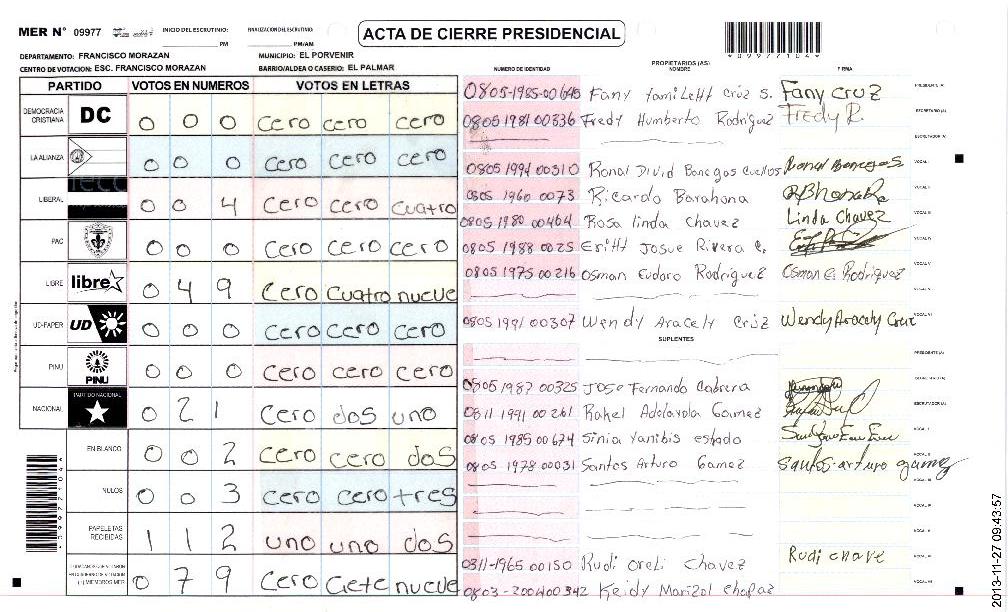 MER N° 09977 INICIO DEL ESCRUTINIO: PM FINALIZACION DEL ESCRUTINIO: PM/AM
ACTA DE CIERRE PRESIDENCIAL
*09977104*
DEPARTAMENTO: FRANCISCO MORAZAN MUNICIPIO: EL PORVENIR
CENTRO DE VOTACION: ESC. FRANCISCO MORAZAN BARRIO/ALDEA O CASERIO: EL PALMAR
PARTIDO VOTOS EN NUMEROS VOTOS EN LETRAS
DEMOCRACIA CRISTIANA DC 0 0 0 cero cero cero
LA ALIANZA 0 0 0 cero cero cero
LIBERAL 0 0 4 cero cero cuatro
PAC 0 0 0 cero cero cero
LIBRE libre 0 4 9 cero cuatro nueve
UD-FAPER UD 0 0 0 cero cero cero
PINU PINU 0 0 0 cero cero cero
NACIONAL PARTIDO NACIONAL 0 2 1 cero dos uno
EN BLANCO 0 0 2 cero cero dos
NULOS 0 0 3 cero cero tres
PAPELETAS RECIBIDAS 1 1 2 uno uno dos
0 7 9 cero ciete nueve
NUMERO DE IDENTIDAD PROPIETARIOS (AS) NOMBRE FIRMA
0805-1985-00645 Fany Yamileth Cruz S. Fany Cruz PRESIDENTE (A)
0805 1981 00336 Fredy Humberto Rodriguez Fredy R. SECRETARIO (A)
ESCRUTADOR (A)
0805 1994 00310 Ronal David Banegas Ronal Banegas VOCAL I
0805 1960 0073 Ricardo Barahona VOCAL II
0805 1980 00464 Rosa linda Chavez Linda Chavez VOCAL III
0805 1988 0025 Josue Rivera VOCAL IV
0805 1975 00216 Osman Eudoro Rodriguez Osman E. Rodriguez VOCAL V
0805 1991 00307 Wendy Aracely Cruz Wendy Aracely Cruz
SUPLENTES
PRESIDENTE (A)
0805 1987 00325 Jose Fernando Cabrera SECRETARIO (A)
0811 1991 00261 Gamez ESCRUTADOR (A)
0805 1985 00674 Sinia Yanibis estado
0805 1978 00031 Santos Arturo Gamez santos arturo gamez
0311-1965 00150 Rudi Oreli Chavez Rudi chave
0803-200400342 Keidy Marizol chapaz
2013-11-27 09:43:57